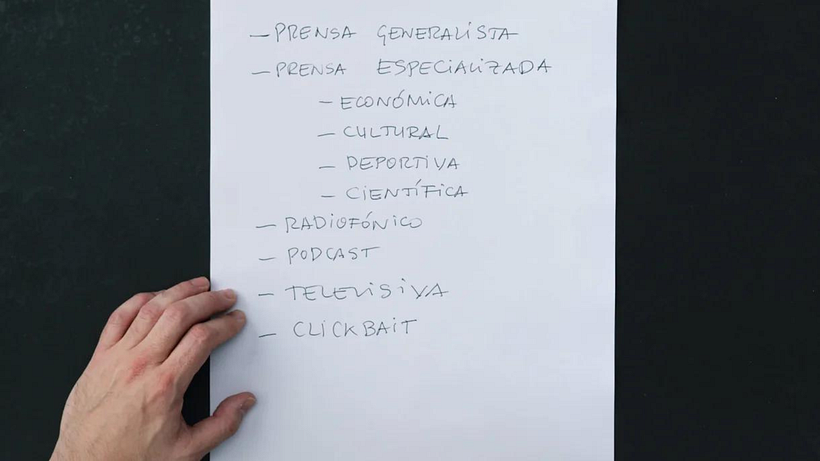 – PRENSA GENERALISTA
– PRENSA ESPECIALIZADA
– ECONÓMICA
– CULTURAL
– DEPORTIVA
– CIENTÍFICA
– RADIOFÓNICO
– PODCAST
– TELEVISIVA
– CLICKBAIT